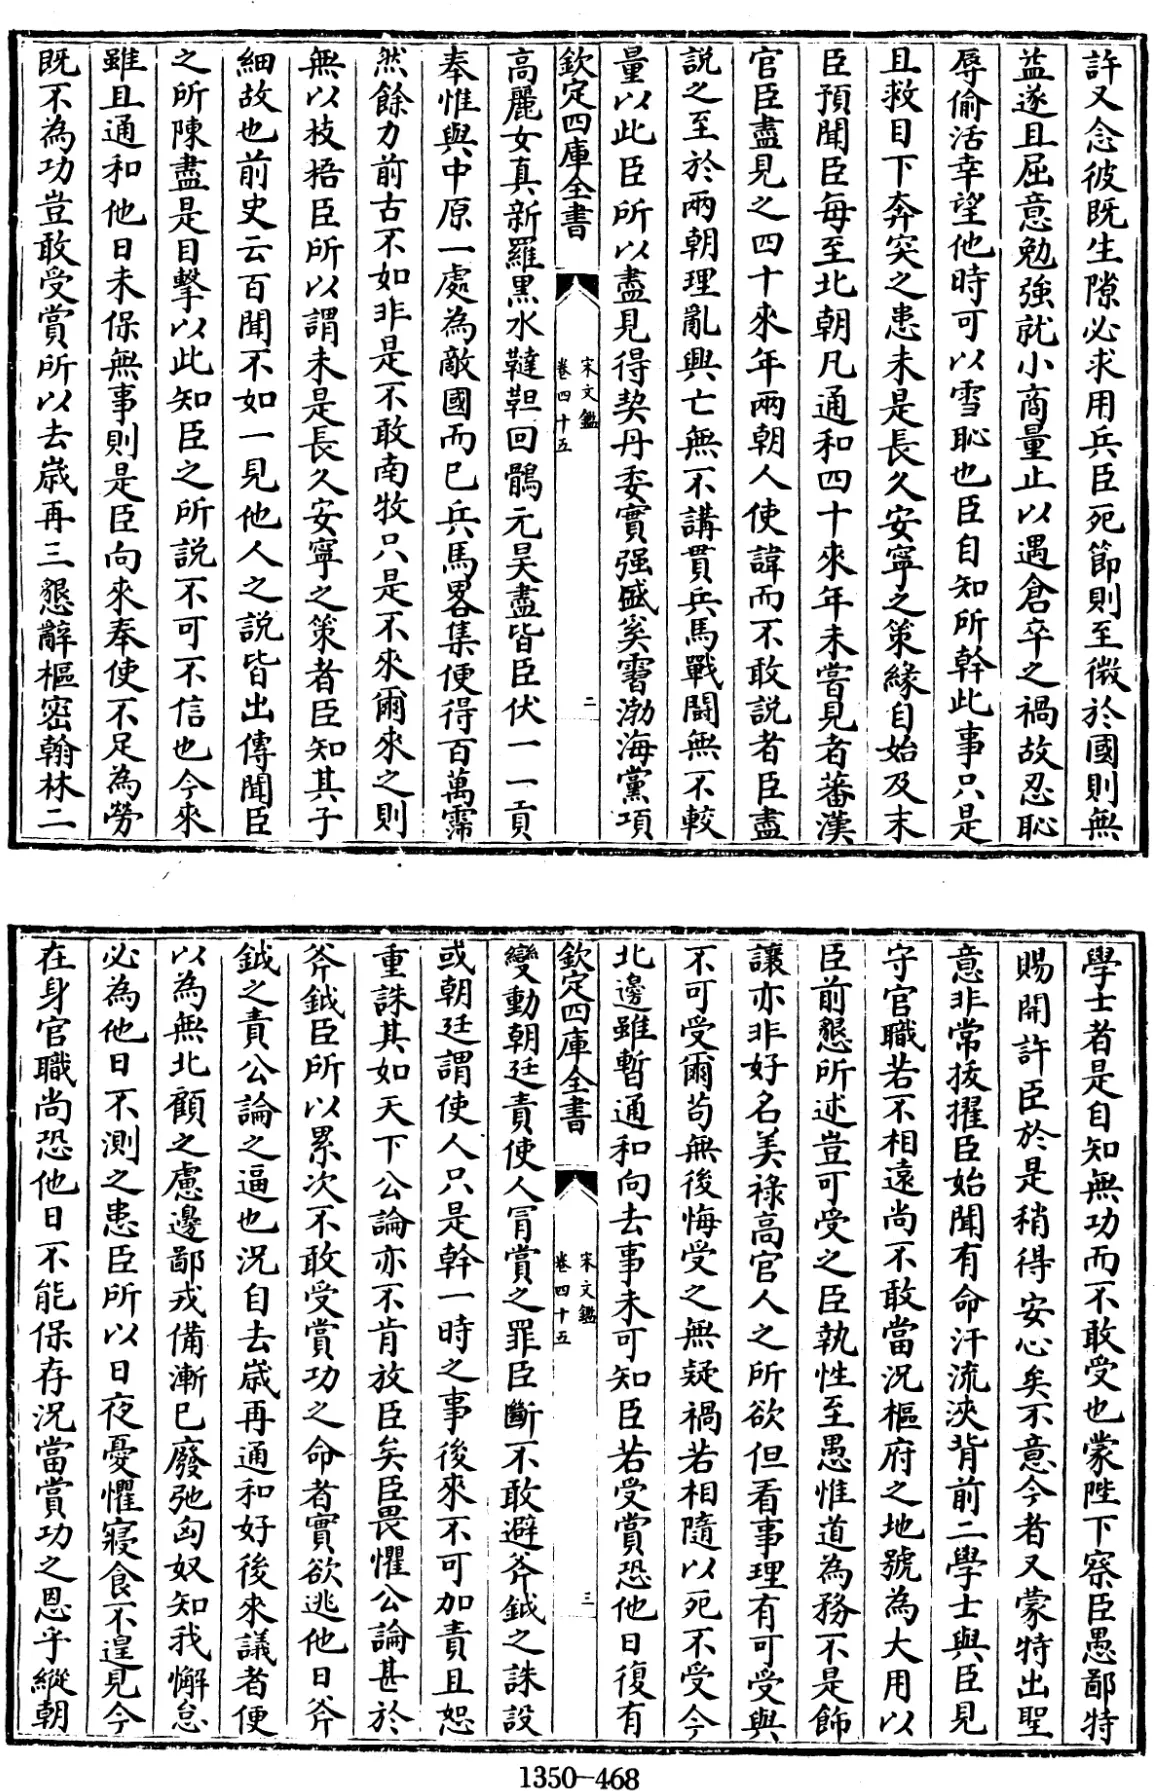 許又念彼既生隙必求用兵臣死節則至微於國則無
益遂且屈意勉強就小商量止以遇倉卒之禍故忍恥
辱偷活幸望他時可以雪恥也臣自知所幹此事只是
且救目下奔突之患未是長久安寧之策緣自始及末
臣預聞臣每至北朝凡通和四十來年未嘗見者蕃漢
官臣盡見之四十來年兩朝人使諱而不敢說者臣盡
說之至於兩朝理亂興亡無不講貫兵馬戰鬪無不較
量以此臣所以盡見得契丹委實强盛奚霫渤海黨項
欽定四庫全書
宋文鑑
卷四十五
二
高麗女真新羅黑水韃靼回鶻元昊盡皆臣伏一一貢
奉惟與中原一處為敵國而已兵馬畧集便得百萬霈
然餘力前古不如非是不敢南牧只是不來爾來之則
無以枝梧臣所以謂未是長久安寧之策者臣知其子
細故也前史云百聞不如一見他人之說皆出傳聞臣
之所陳盡是目擊以此知臣之所說不可不信也今來
雖且通和他日未保無事則是臣向來奉使不足為勞
既不為功豈敢受賞所以去歲再三懇辭樞密翰林二
學士者是自知無功而不敢受也蒙陛下察臣愚鄙特
賜開許臣於是稍得安心矣不意今者又蒙特出聖
意非常拔擢臣始聞有命汗流浹背前二學士與臣見
守官職若不相遠尚不敢當況樞府之地號為大用以
臣前懇所述豈可受之臣執性至愚惟道為務不是飾
讓亦非好名美祿高官人之所欲但看事理有可受與
不可受爾苟無後悔受之無疑禍若相隨以死不受今
北邊雖暫通和向去事未可知臣若受賞恐他日復有
欽定四庫全書
宋文鑑
卷四十五
三
變動朝廷責使人冐賞之罪臣斷不敢避斧鉞之誅設
或朝廷謂使人只是幹一時之事後來不可加責且恕
重誅其如天下公論亦不肯放臣矣臣畏懼公論甚於
斧鉞臣所以累次不敢受賞功之命者實欲逃他日斧
鉞之責公論之逼也況自去歲再通和好後來議者便
以為無北顧之慮邊鄙戎備漸已廢弛匈奴知我懈怠
必為他日不測之患臣所以日夜憂懼寢食不遑見今
在身官職尚恐他日不能保存況當賞功之恩乎縱朝
1350-468